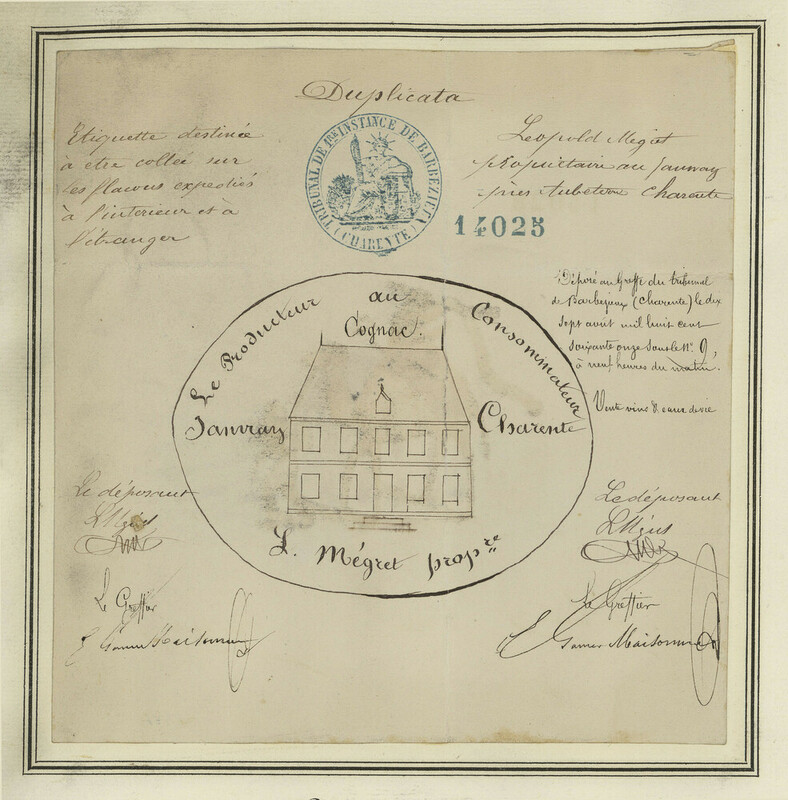 Duplicata
Etiquette destinée
à etre collée sur
les flacons expediés
à l'interieur et à
l'étranger
TRIBUNAL DE 1RE INSTANCE DE BARBEZIEUX
(CHARENTE)
Leopold Megret
propriétaire au Jauvray
près Aubeterre Charente
14025
Déposé au Greffe du tribunal
de Barbezieux (Charente) le dix
sept avril mil huit cent
soixante onze sous le N° 9,
à neuf heures du matin.
Vente vins & eaux de vie
Le Producteur au Consommateur
Cognac.
Jauvray Charente
L. Mégret prop.re
Le déposant
Le Greffier
Le déposant
Le Greffier